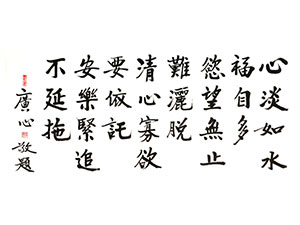 心淡如水
福自多
慾望無止
難灑脫
清心寡欲
要依託
安樂緊追
不延拖
廣心敬題